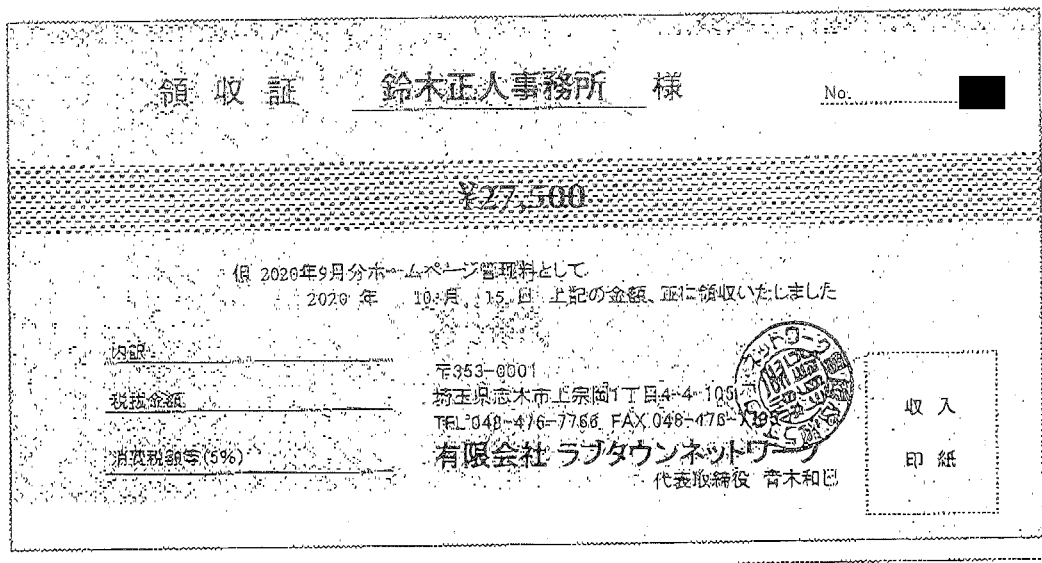 領収証 鈴木正人事務所 様 No.
¥27,500
但 2020年9月分ホームページ管理料として
2020 年 10 月 15 日 上記の金額、正に領収いたしました
内訳
税抜金額
消費税額等(5%)
〒353-0001
埼玉県志木市上宗岡1丁目4-4-105
TEL 048-476-7766 FAX 048-476-
有限会社 ラブタウンネットワーク
代表取締役 青木和巳
収入
印紙